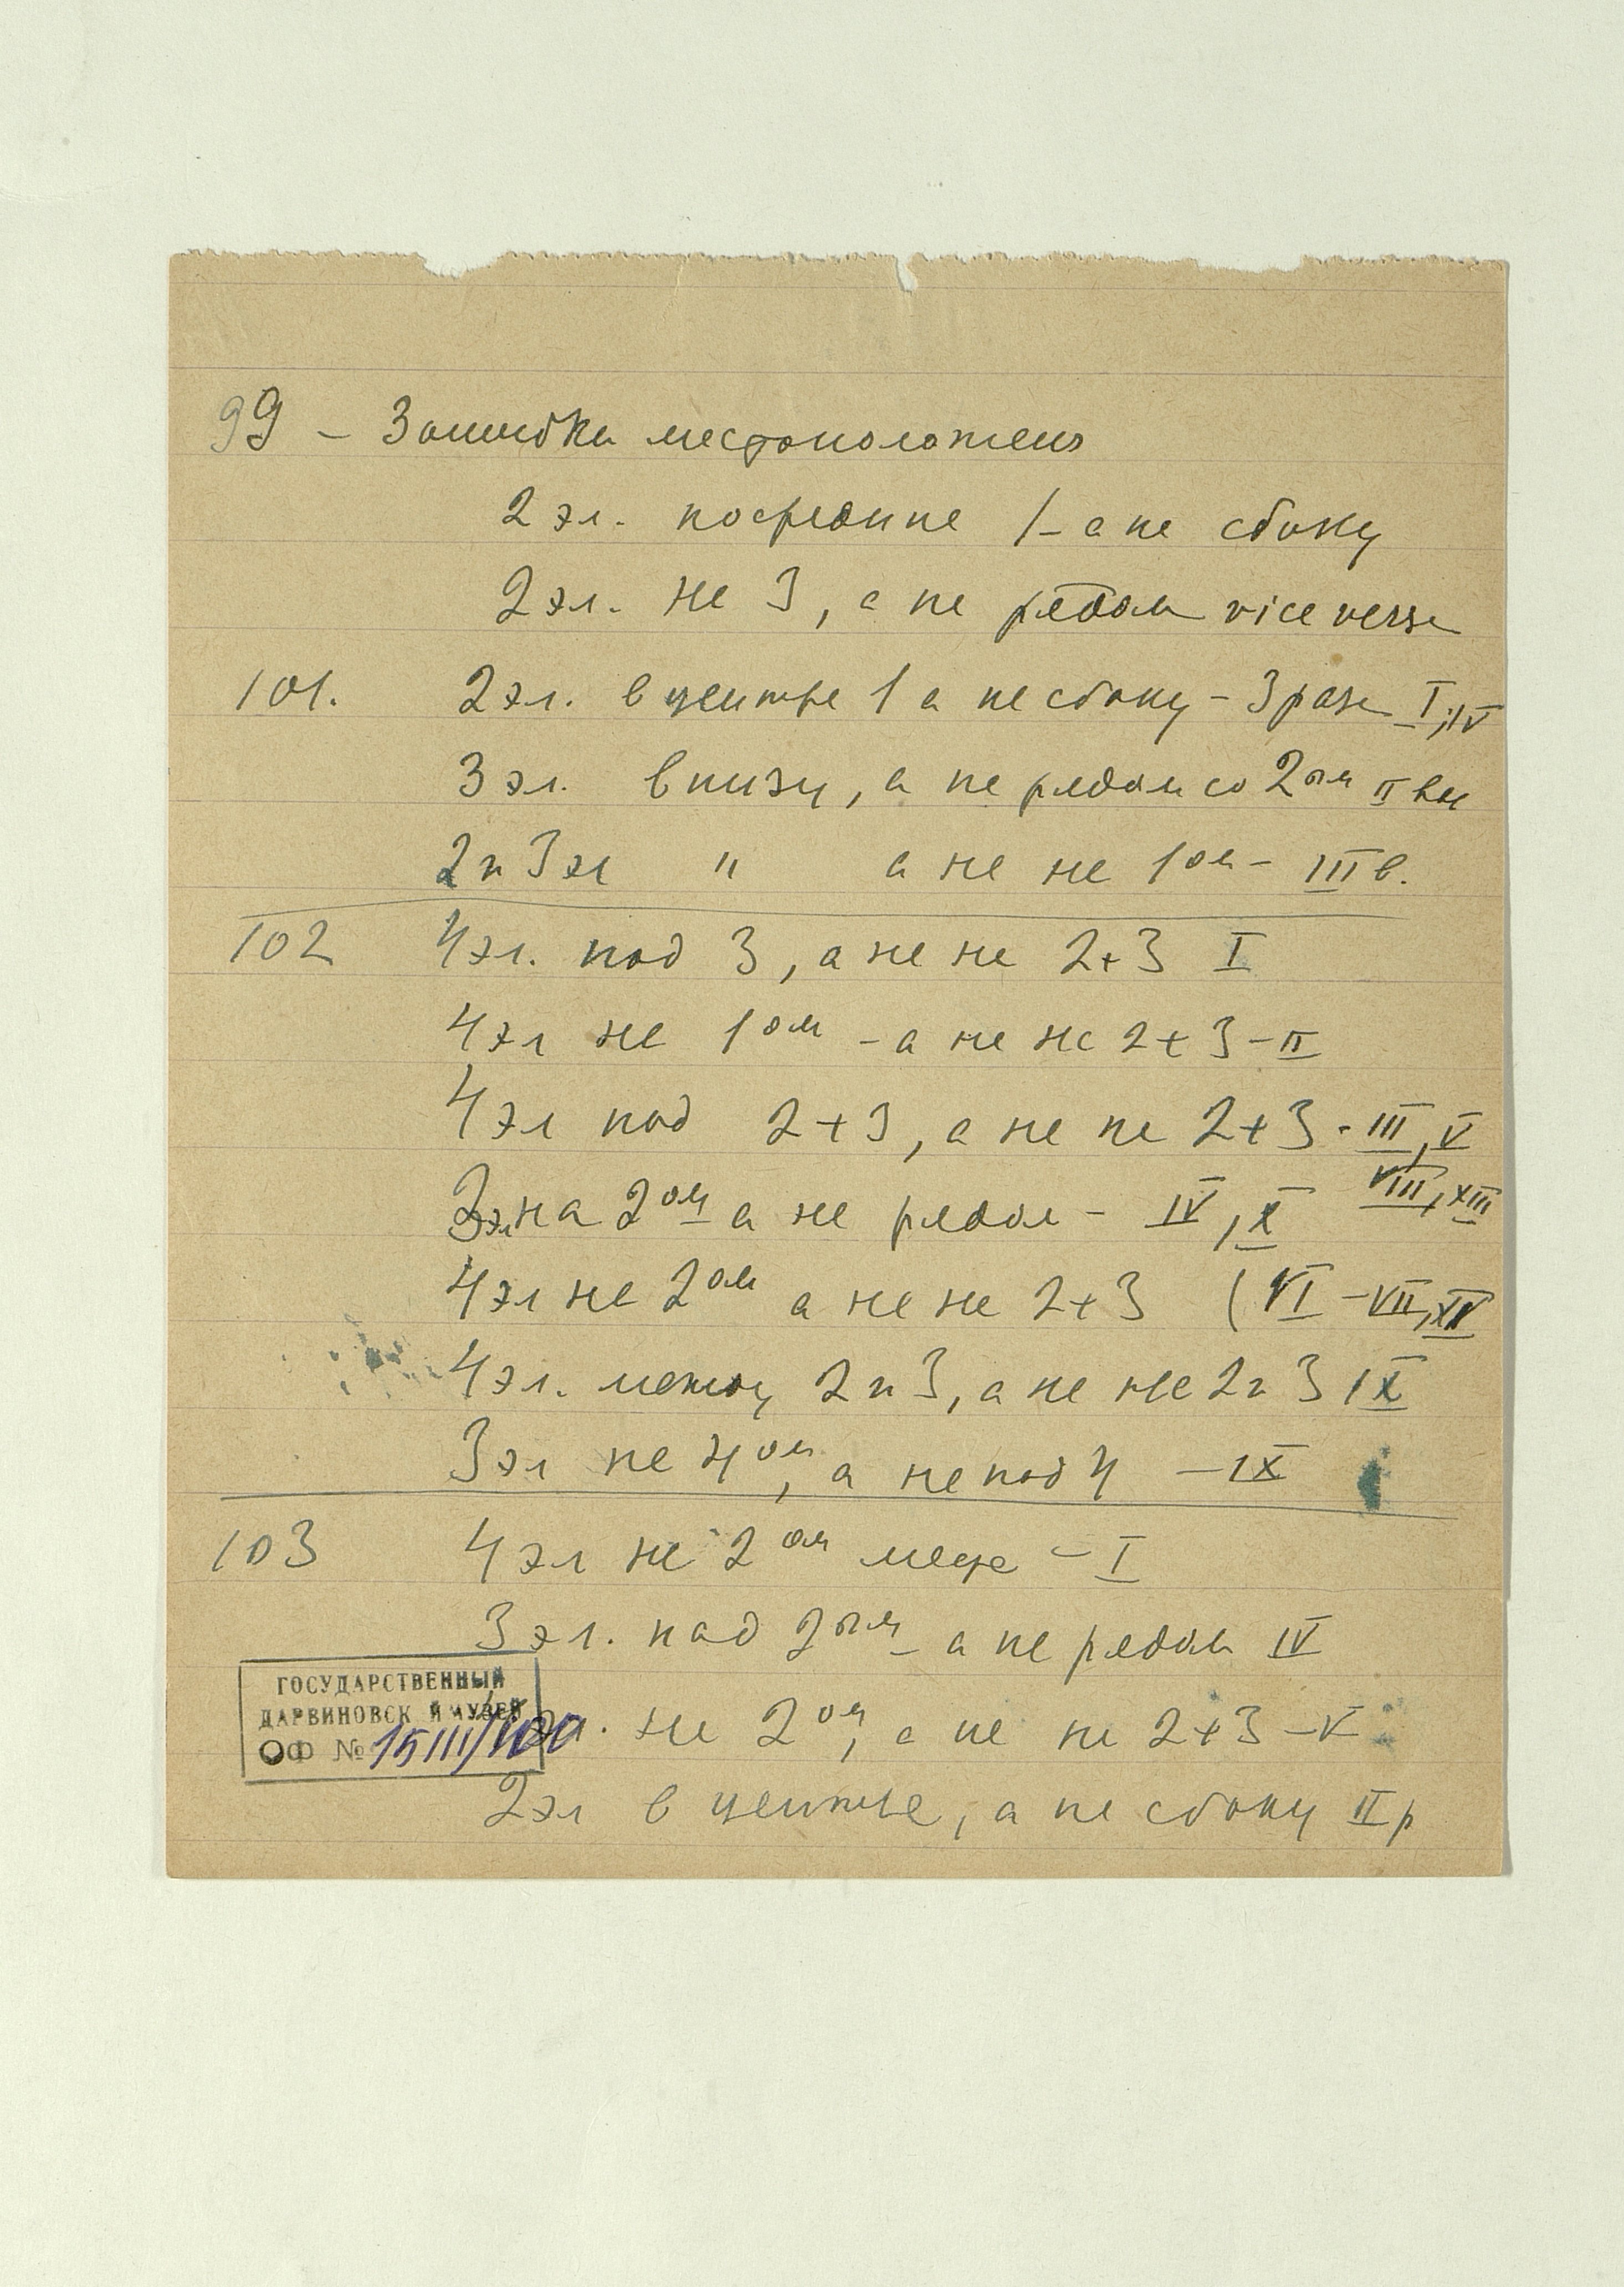 99 – 3 ошибки местоположения
2 эл. посредине 1 – а не сбоку
2 эл. на 3, а не рядом vice versa
101. 2 эл. в центре 1 а не сбоку – 3 раза I, IV
3 эл. внизу, а не рядом со 2ым II
2 и 3 эл " а не на 1ом – III в.
102 4 эл. под 3, а не на 2+3 I
4 эл на 1ом – а не на 2+3 – II
4 эл под 2+3, а не на 2+3 – III, V
VIII, XIII
3 эл на 2ом а не рядом – IV, X
4 эл на 2ом а не на 2+3 (VI – VII, XIV
4 эл. между 2 и 3, а не на 2 и 3 IX
3 эл на 4ом, а не под 4 – IX
103 4 эл на 2ом месте – I
3 эл. над 2ым – а не рядом IV
эл. на 2ом, а не на 2+3 – V
2 эл в центре, а не сбоку II р
ГОСУДАРСТВЕННЫЙ
ДАРВИНОВСК Й МУЗЕЙ
ОФ № 15111/400